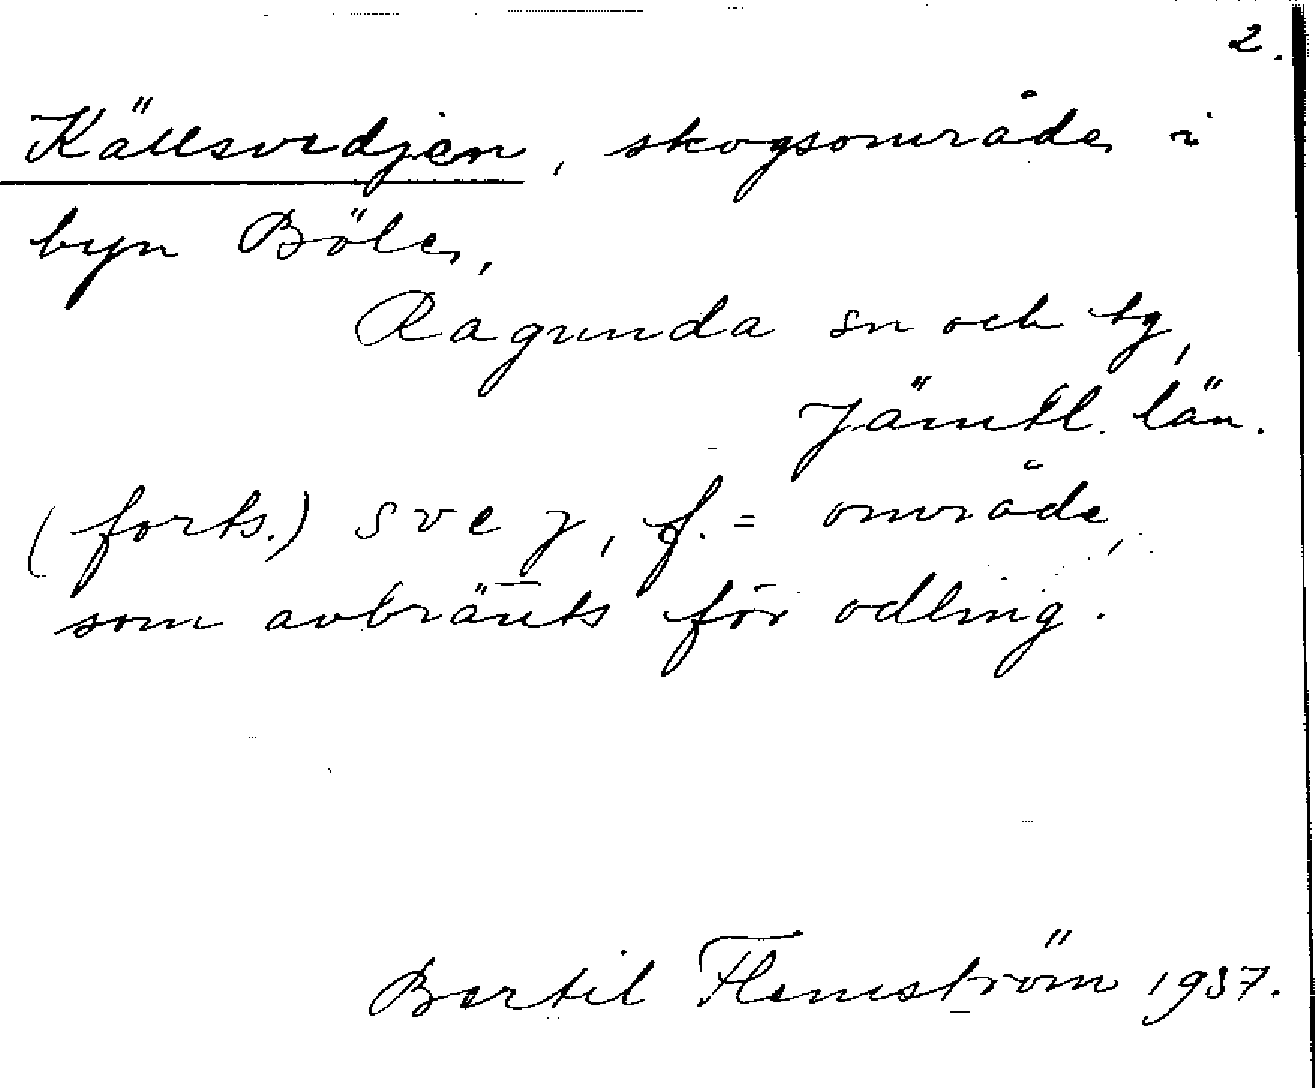 2.
Källsvedjen, skogsområde i
byn Böle,
Ragunda sn och tg,
Jämtl. län.
(forts.) svej, f. = område,
som avbränts för odling.
Bertil Flemström 1937.